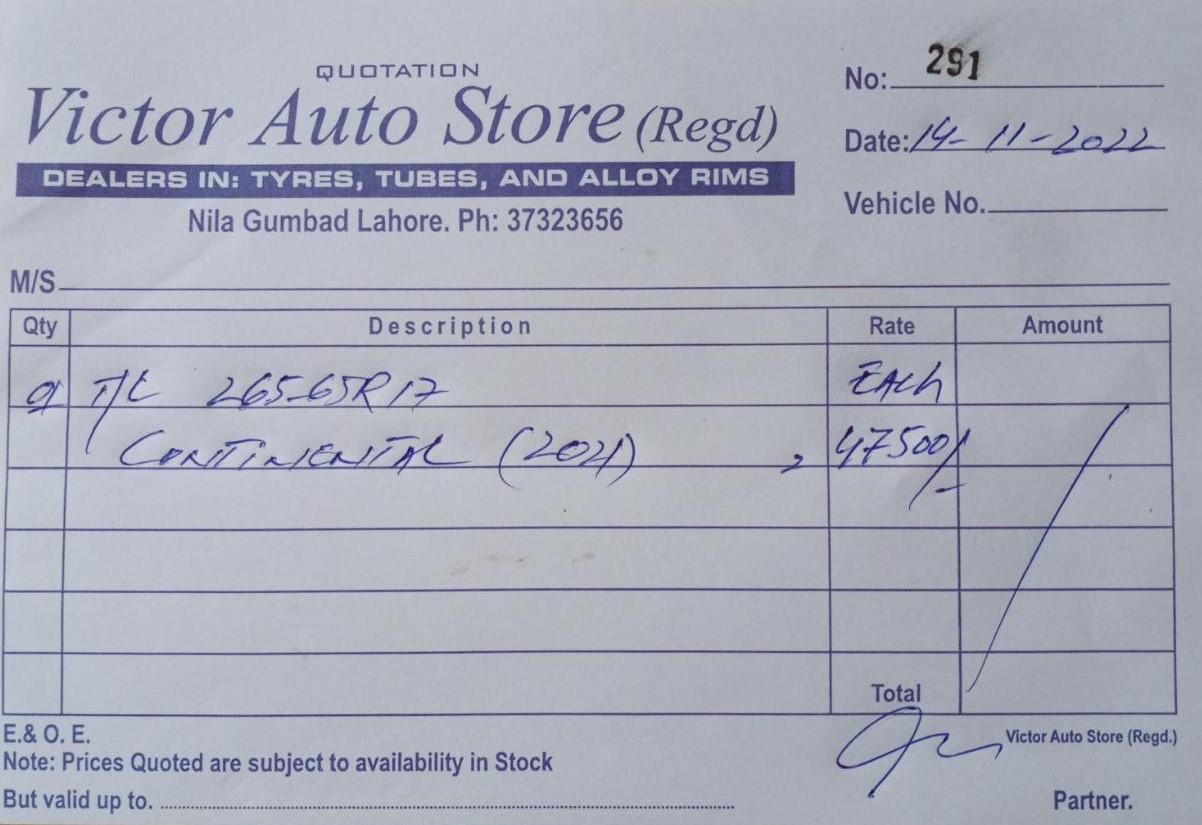 QUOTATION
Victor Auto Store (Regd)
DEALERS IN: TYRES, TUBES, AND ALLOY RIMS
Nila Gumbad Lahore. Ph: 37323656
No: 291
Date: 14-11-2022
Vehicle No.
M/S
Qty Description Rate Amount
T/L 265-65R17 EACH
CONTINENTAL (2021) 47500/-
Total
E.& O. E.
Victor Auto Store (Regd.)
Note: Prices Quoted are subject to availability in Stock
But valid up to.
Partner.